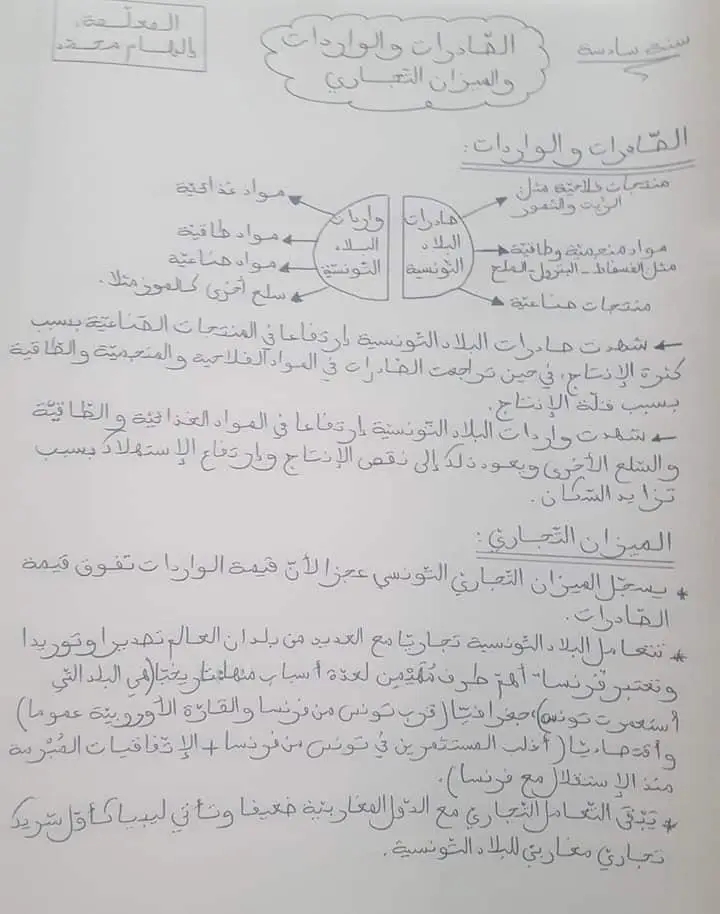 سنة سادسة
الصّادرات والواردات
والميزان التّجاري
المعلّمة:
إلهام محمّد
الصّادرات والواردات:
منتجات فلاحيّة مثل
الزيت والتمور
مواد منجميّة وطاقيّة
مثل الفسفاط - البترول - الملح
منتجات صناعيّة
صادرات
البلاد
التّونسية
واردات
البلاد
التّونسيّة
مواد غذائيّة
مواد طاقيّة
مواد صناعيّة
سلع أخرى كالموز مثلا.
← شهدت صادرات البلاد التّونسية إرتفاعا في المنتجات الصّناعيّة بسبب
كثرة الإنتاج، في حين تراجعت الصّادرات في المواد الفلاحية والمنجميّة والطّاقية
بسبب قلّة الإنتاج.
← شهدت واردات البلاد التّونسية إرتفاعا في المواد الغذائيّة والطّاقيّة
والسّلع الأخرى ويعود ذلك إلى نقص الإنتاج وإرتفاع الإستهلاك بسبب
تزايد السّكان.
الميزان التّجاري:
* يسجّل الميزان التّجاري التّونسي عجزا لأنّ قيمة الواردات تفوق قيمة
الصّادرات.
* تتعامل البلاد التّونسية تجاريّا مع العديد من بلدان العالم تصديرا وتوريدا
وتعتبر فرنسا أهمّ طرف مُهَيْمِن لعدّة أسباب منها: تاريخيّا (هي البلد التّي
أستعمرت تونس)، جغرافيّا (قرب تونس من فرنسا والقارّة الأوروبيّة عموما)
وأقتصاديّا (أغلب المستثمرين في تونس من فرنسا + الإتّفاقيات المُبْرمة
منذ الإستقلال مع فرنسا).
* يَبْقى التّعامل التّجاري مع الدّول المغاربيّة ضعيفا وتأتي ليبيا كأوّل شريك
تجاريّ مغاربيّ للبلاد التّونسية.